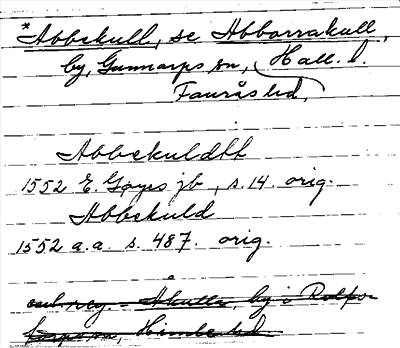 *Abbekull, se Abborrakull,
by, Gunnarps sn, Hall. l.
Faurås hd,
Abbekuldtt
1552 E. Goyes jb, s. 14. orig.
Abbekuld
1552 a.a. s. 487. orig.
reg. - Akulla, by i
sn, Himle hd.